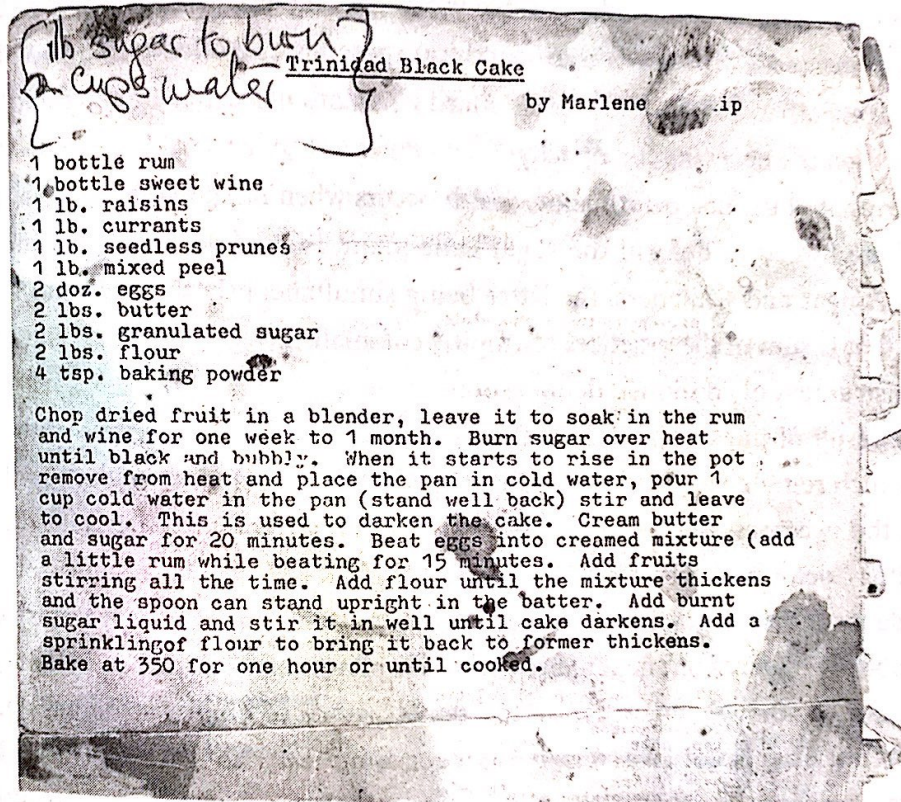 1lb sugar to burn
2 cups water
Trinidad Black Cake
by Marlene
1 bottle rum
1 bottle sweet wine
1 lb. raisins
1 lb. currants
1 lb. seedless prunes
1 lb. mixed peel
2 doz. eggs
2 lbs. butter
2 lbs. granulated sugar
2 lbs. flour
4 tsp. baking powder
Chop dried fruit in a blender, leave it to soak in the rum
and wine for one week to 1 month. Burn sugar over heat
until black and bubbly. When it starts to rise in the pot
remove from heat and place the pan in cold water, pour 1
cup cold water in the pan (stand well back) stir and leave
to cool. This is used to darken the cake. Cream butter
and sugar for 20 minutes. Beat eggs into creamed mixture (add
a little rum while beating for 15 minutes. Add fruits
stirring all the time. Add flour until the mixture thickens
and the spoon can stand upright in the batter. Add burnt
sugar liquid and stir it in well until cake darkens. Add a
sprinklingof flour to bring it back to former thickens.
Bake at 350 for one hour or until cooked.